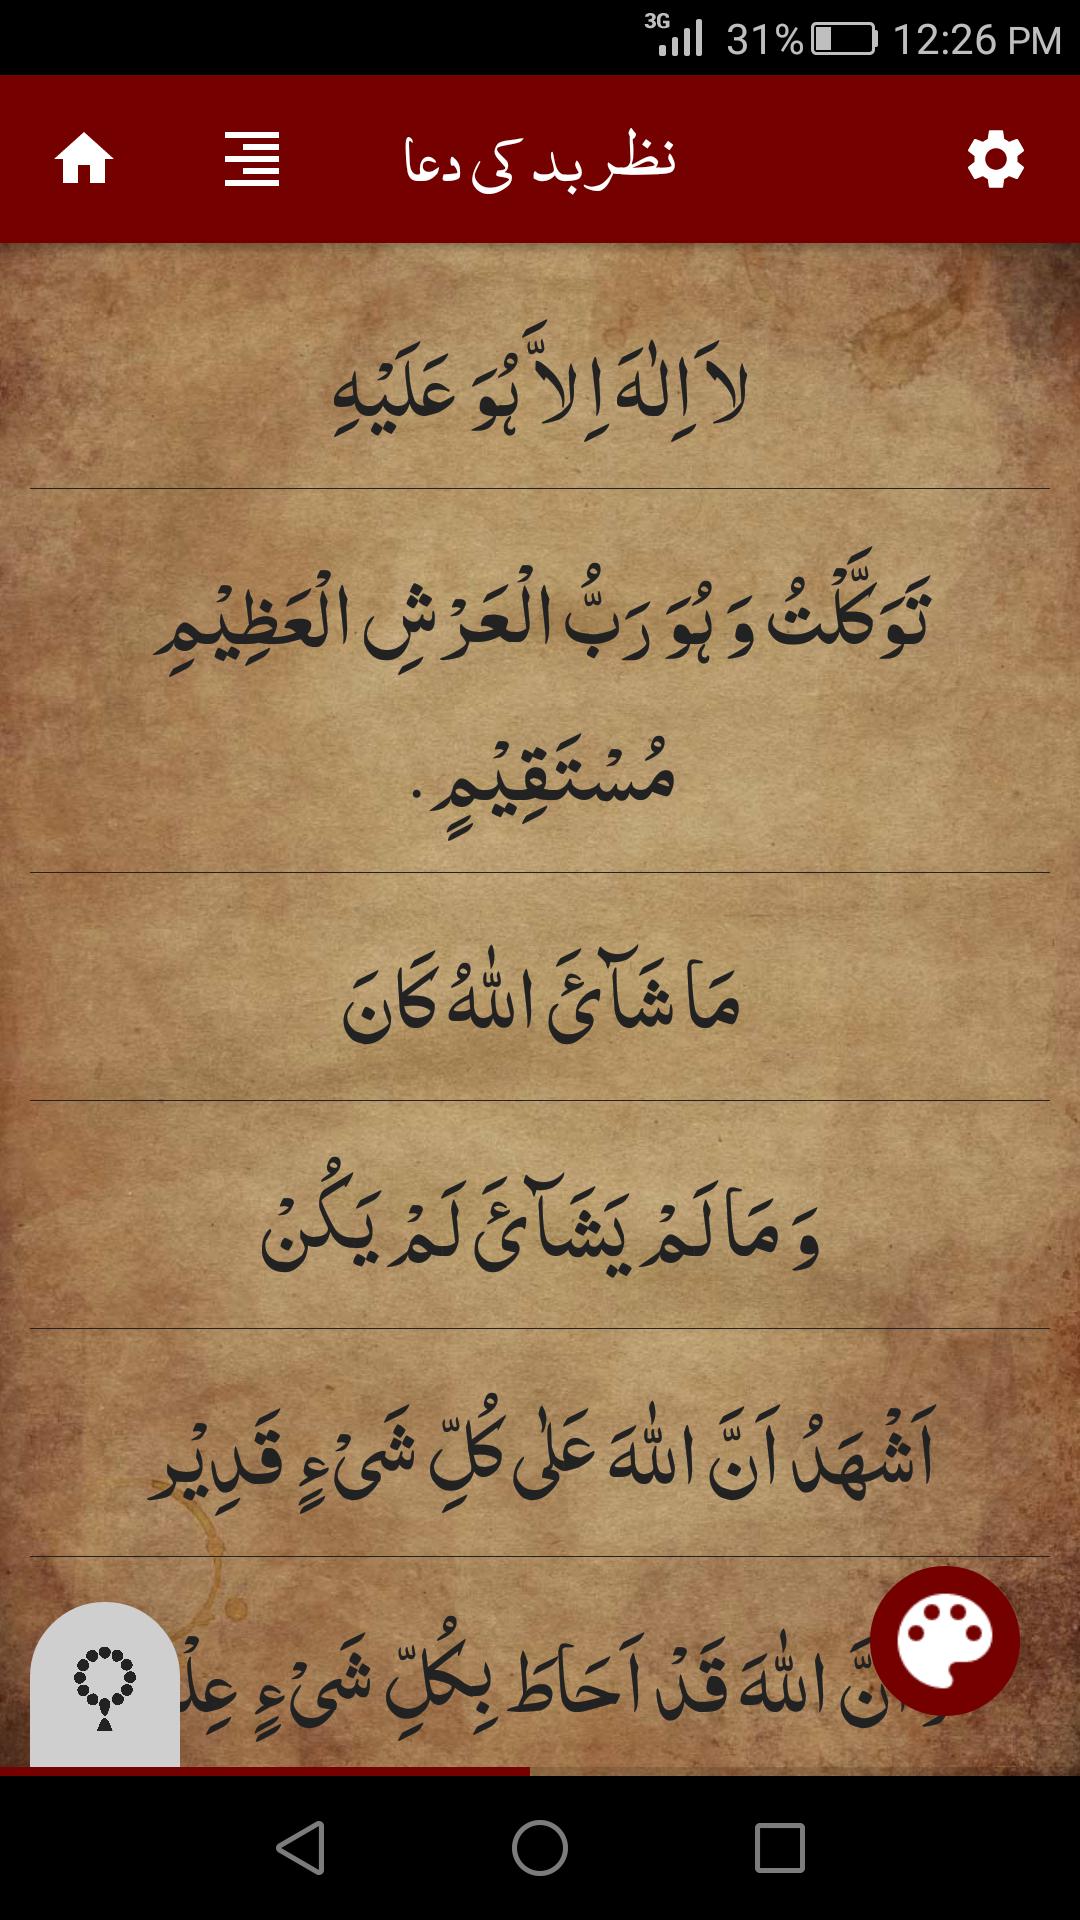 3G 31% 12:26 PM
نظر بد کی دعا
لاَ اِلٰهَ اِلاَّ ہُوَ عَلَيْهِ
تَوَکَّلْتُ وَ ہُوَ رَبُّ الْعَرْشِ الْعَظِيْمِ
مُسْتَقِيْمٍ .
مَا شَآئَ اللّٰهُ کَانَ
وَ مَا لَمْ يَشَآئَ لَمْ يَکُنْ
اَشْهَدُ اَنَّ اللّٰهَ عَلٰی کُلِّ شَیْءٍ قَدِيْر
اللّٰهَ قَدْ اَحَاطَ بِکُلِّ شَیْءٍ